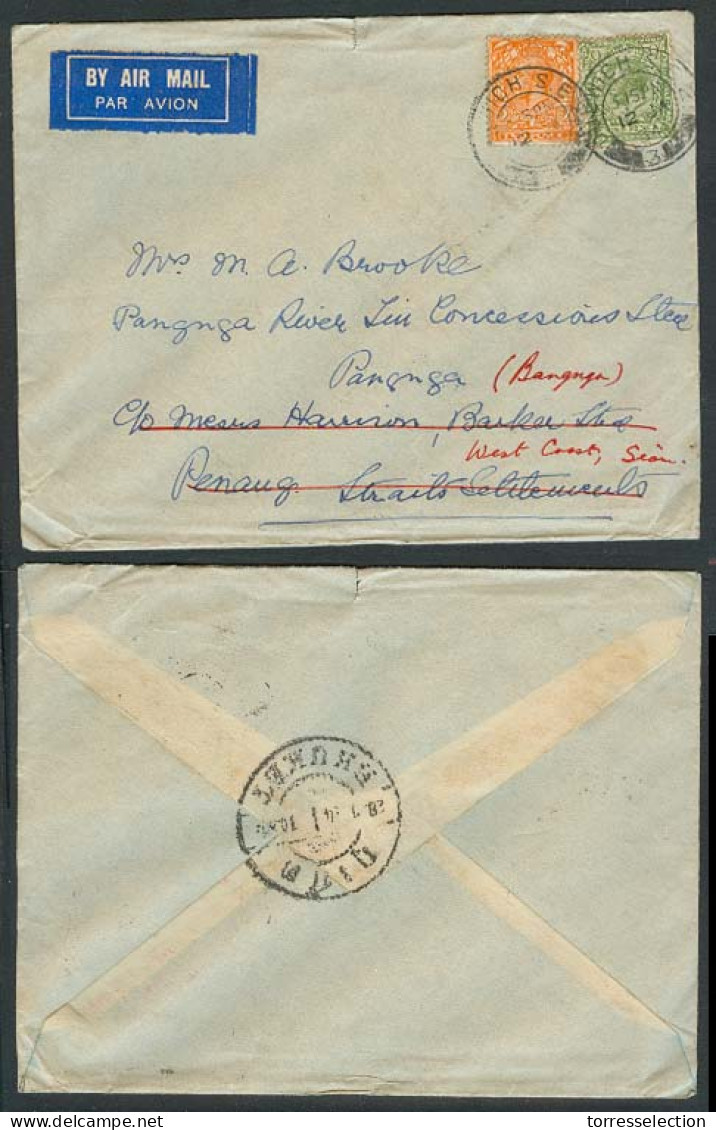 BY AIR MAIL
PAR AVION
ICH S.E.
12
Mrs. M. A. Brooke
Pangnga River Tin Concessions Ltd
Pangnga (Bangnga)
c/o Messrs Harrison, Barker Ltd
West Coast, Siam.
Penang. Straits Settlements
PHUKET
ภูเก็ต
torresselection